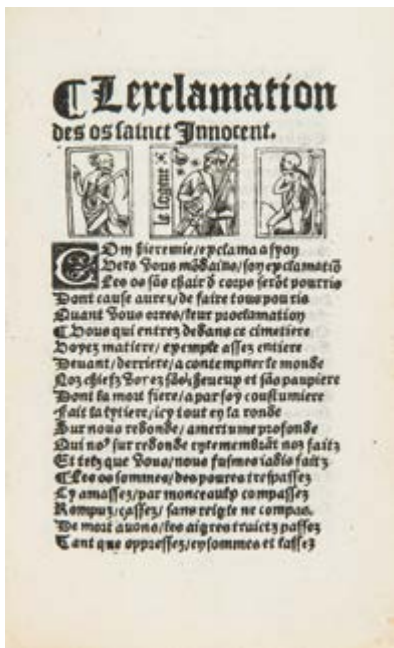 ¶ Lexclamation
des os sainct Innocent.
le cigne
Om hieremie/exclama a syon
Vers vous mõdains/son exclamatiõ
Les os sãs chair d corps serõt pourris
Dont cause aurez/de faire tous pou ris
Quant vous orres/leur proclamation
¶ Vous qui entrez dedans ce cimetiere
Voyez matiere/exemple assez entiere
Devant/derriere/a contempner le monde
Noz chiefz vorez sãs cheueux et sãs paupiere
Dont la mort fiere/a par soy coustumiere
Fait la lytiere/icy tout en la ronde
Sur nous redonde/amertume profonde
Qui no⁹ surredonde en remembrãt noz faitz
Et telz que vous/nous fusmes iadis faitz
¶ Les os sommes/des poures trespassez
Cy amassez/par monceaulx compassez
Rompuz/cassez/sans reigle ne compas.
De mort auons/les aigres truictz passez
Tant que oppressez/en sommes et lassez